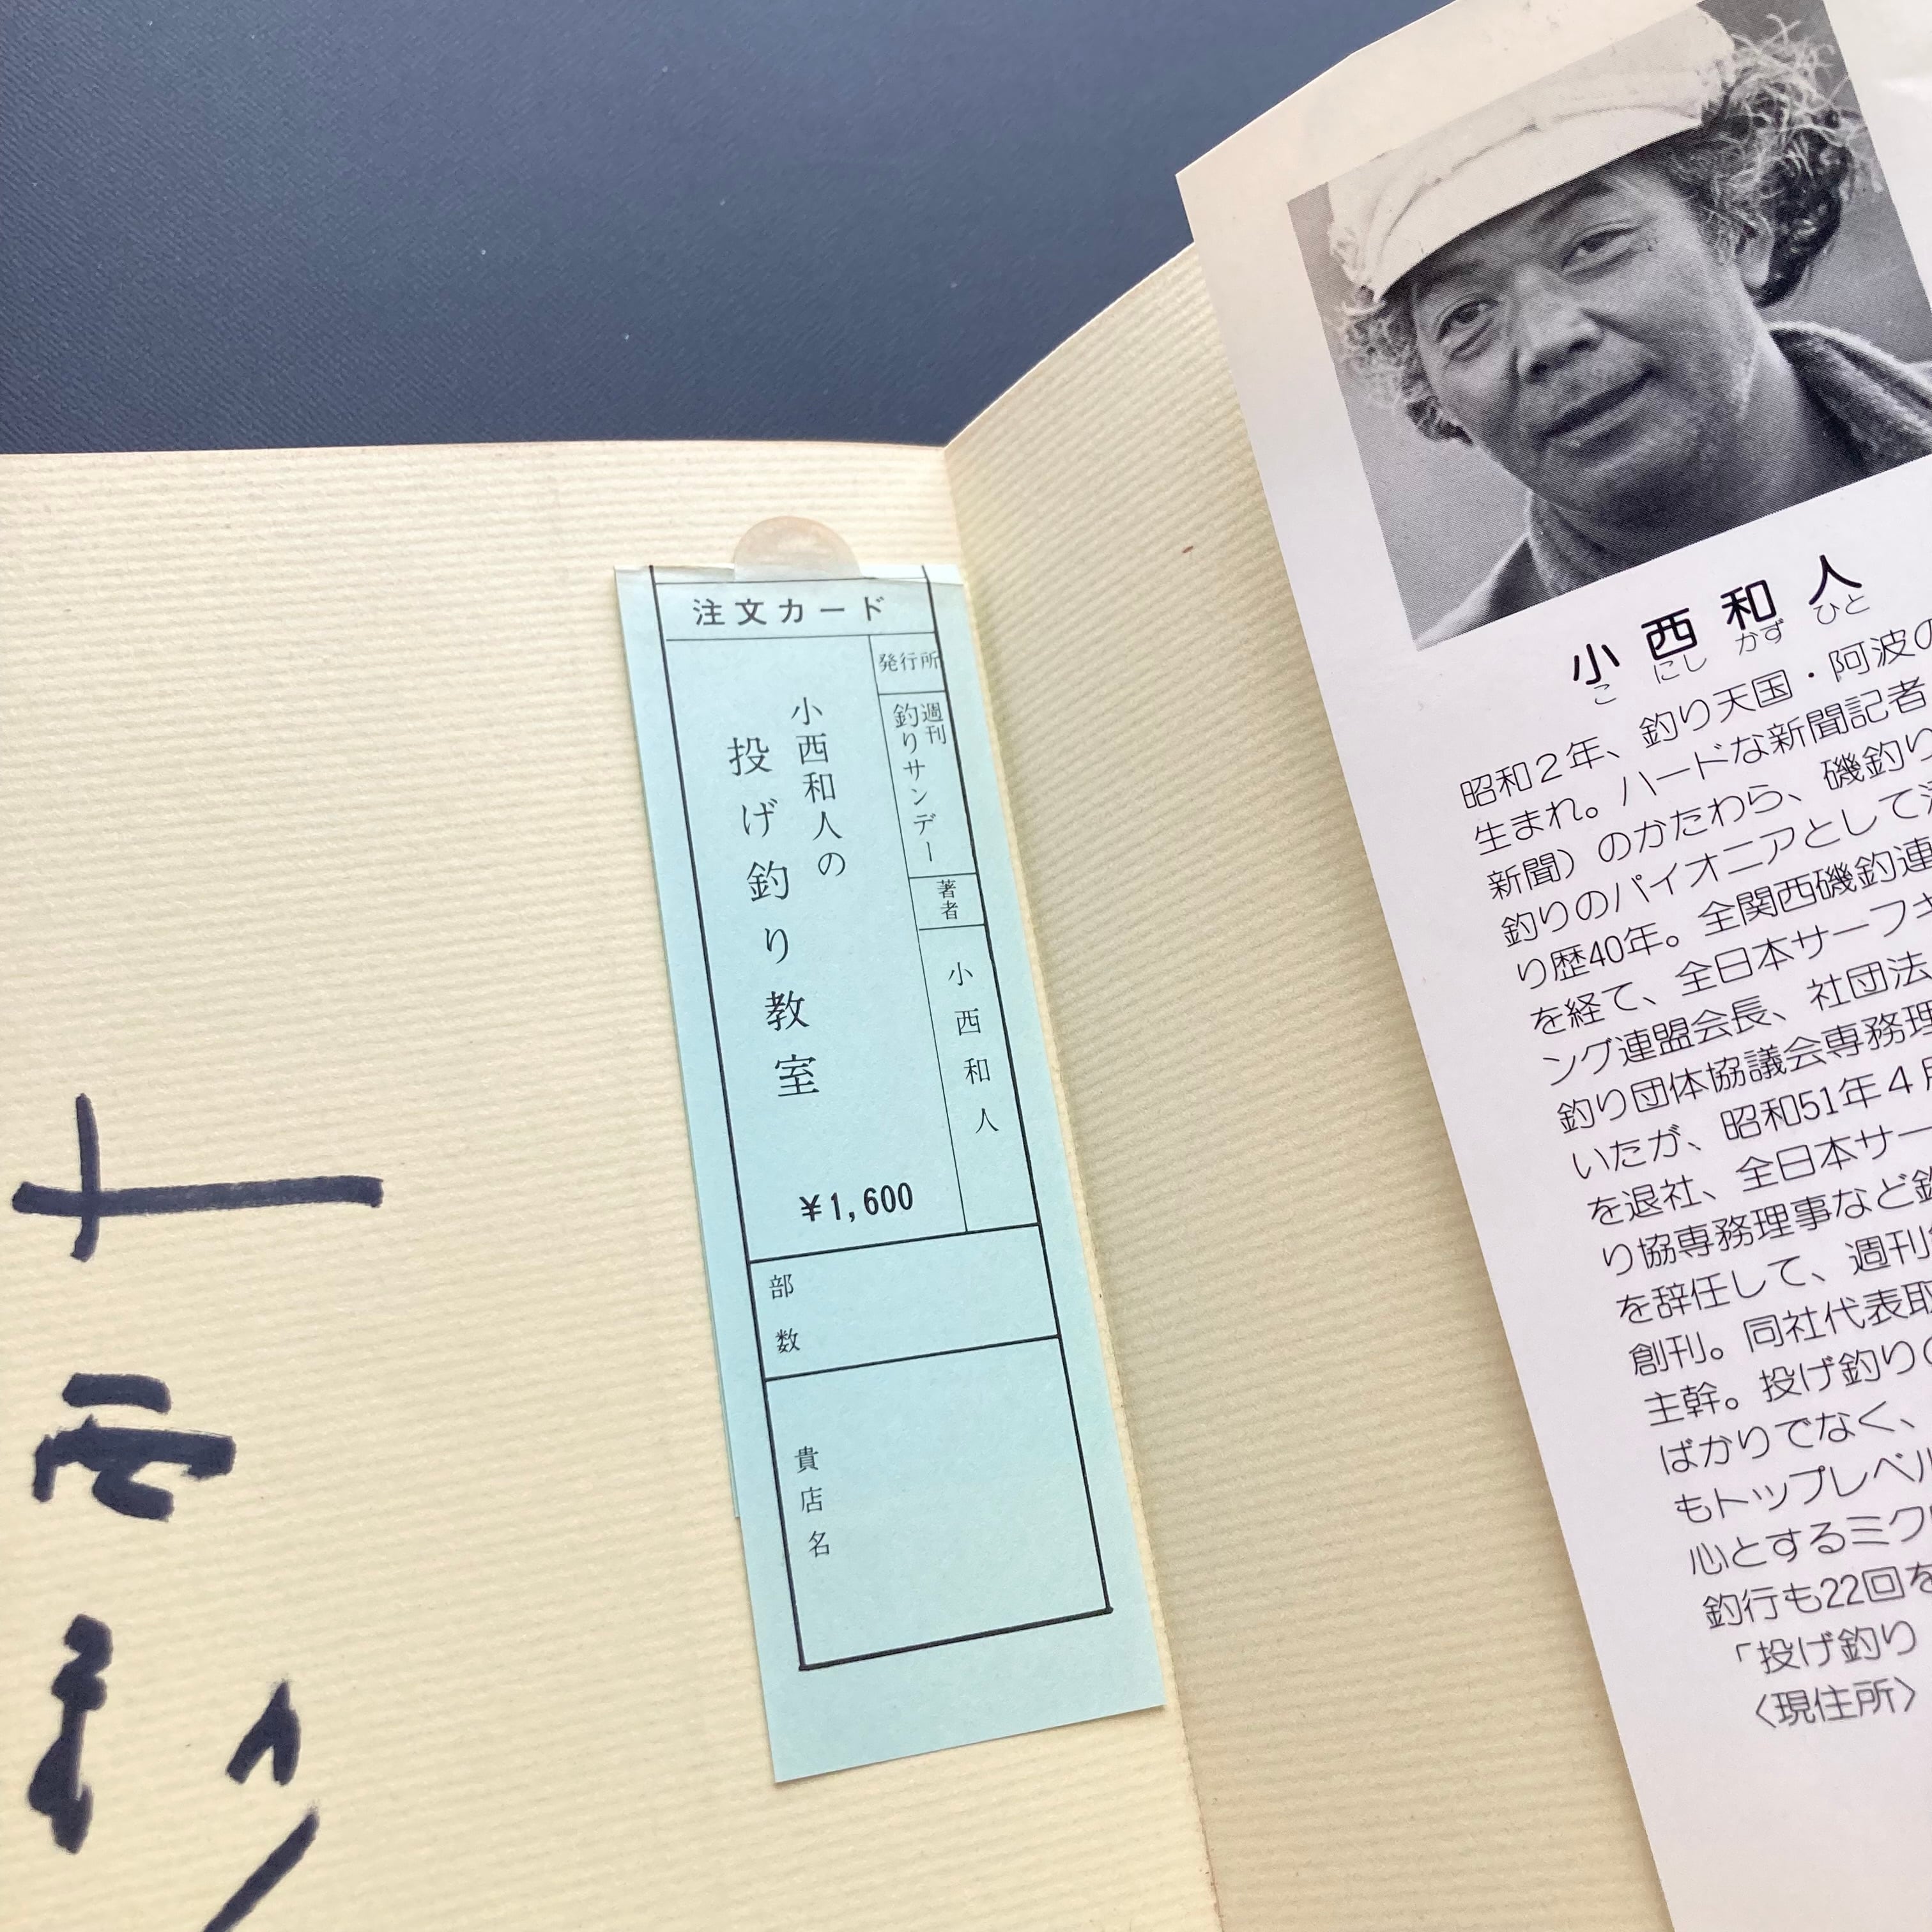 注文カード
発行所
週刊
釣りサンデー
著者
小西和人
小西和人の
投げ釣り教室
¥1,600
部数
貴店名
小西和人
こにしかずひと
昭和2年、釣り天国・阿波の
生まれ。ハードな新聞記者
新聞）のかたわら、磯釣り
釣りのパイオニアとして
り歴40年。全関西磯釣連
を経て、全日本サーフキ
ング連盟会長、社団法
釣り団体協議会専務理
いたが、昭和51年4月
を退社、全日本サー
り協専務理事など釣
を辞任して、週刊
創刊。同社代表取
主幹。投げ釣り
ばかりでなく、
もトップレベル
心とするミク
釣行も22回を
「投げ釣り
〈現住所〉